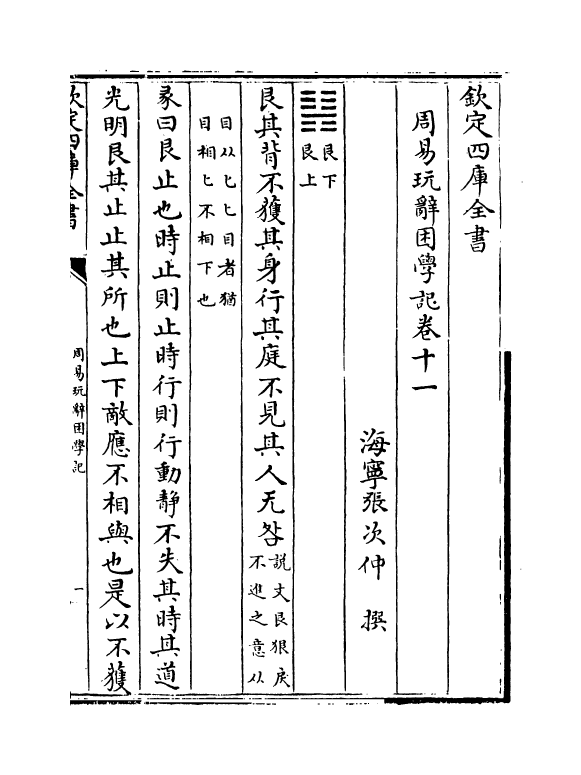 欽定四庫全書
周易玩辭困學記卷十一
海寧張次仲 撰
䷳艮下
艮上
艮其背不獲其身行其庭不見其人无咎說文艮狠戾
不進之意从
目从匕匕目者猶
目相匕不相下也
彖曰艮止也時止則止時行則行動靜不失其時其道
光明艮其止止其所也上下敵應不相與也是以不獲
欽定四庫全書
周易玩辭困學記
一